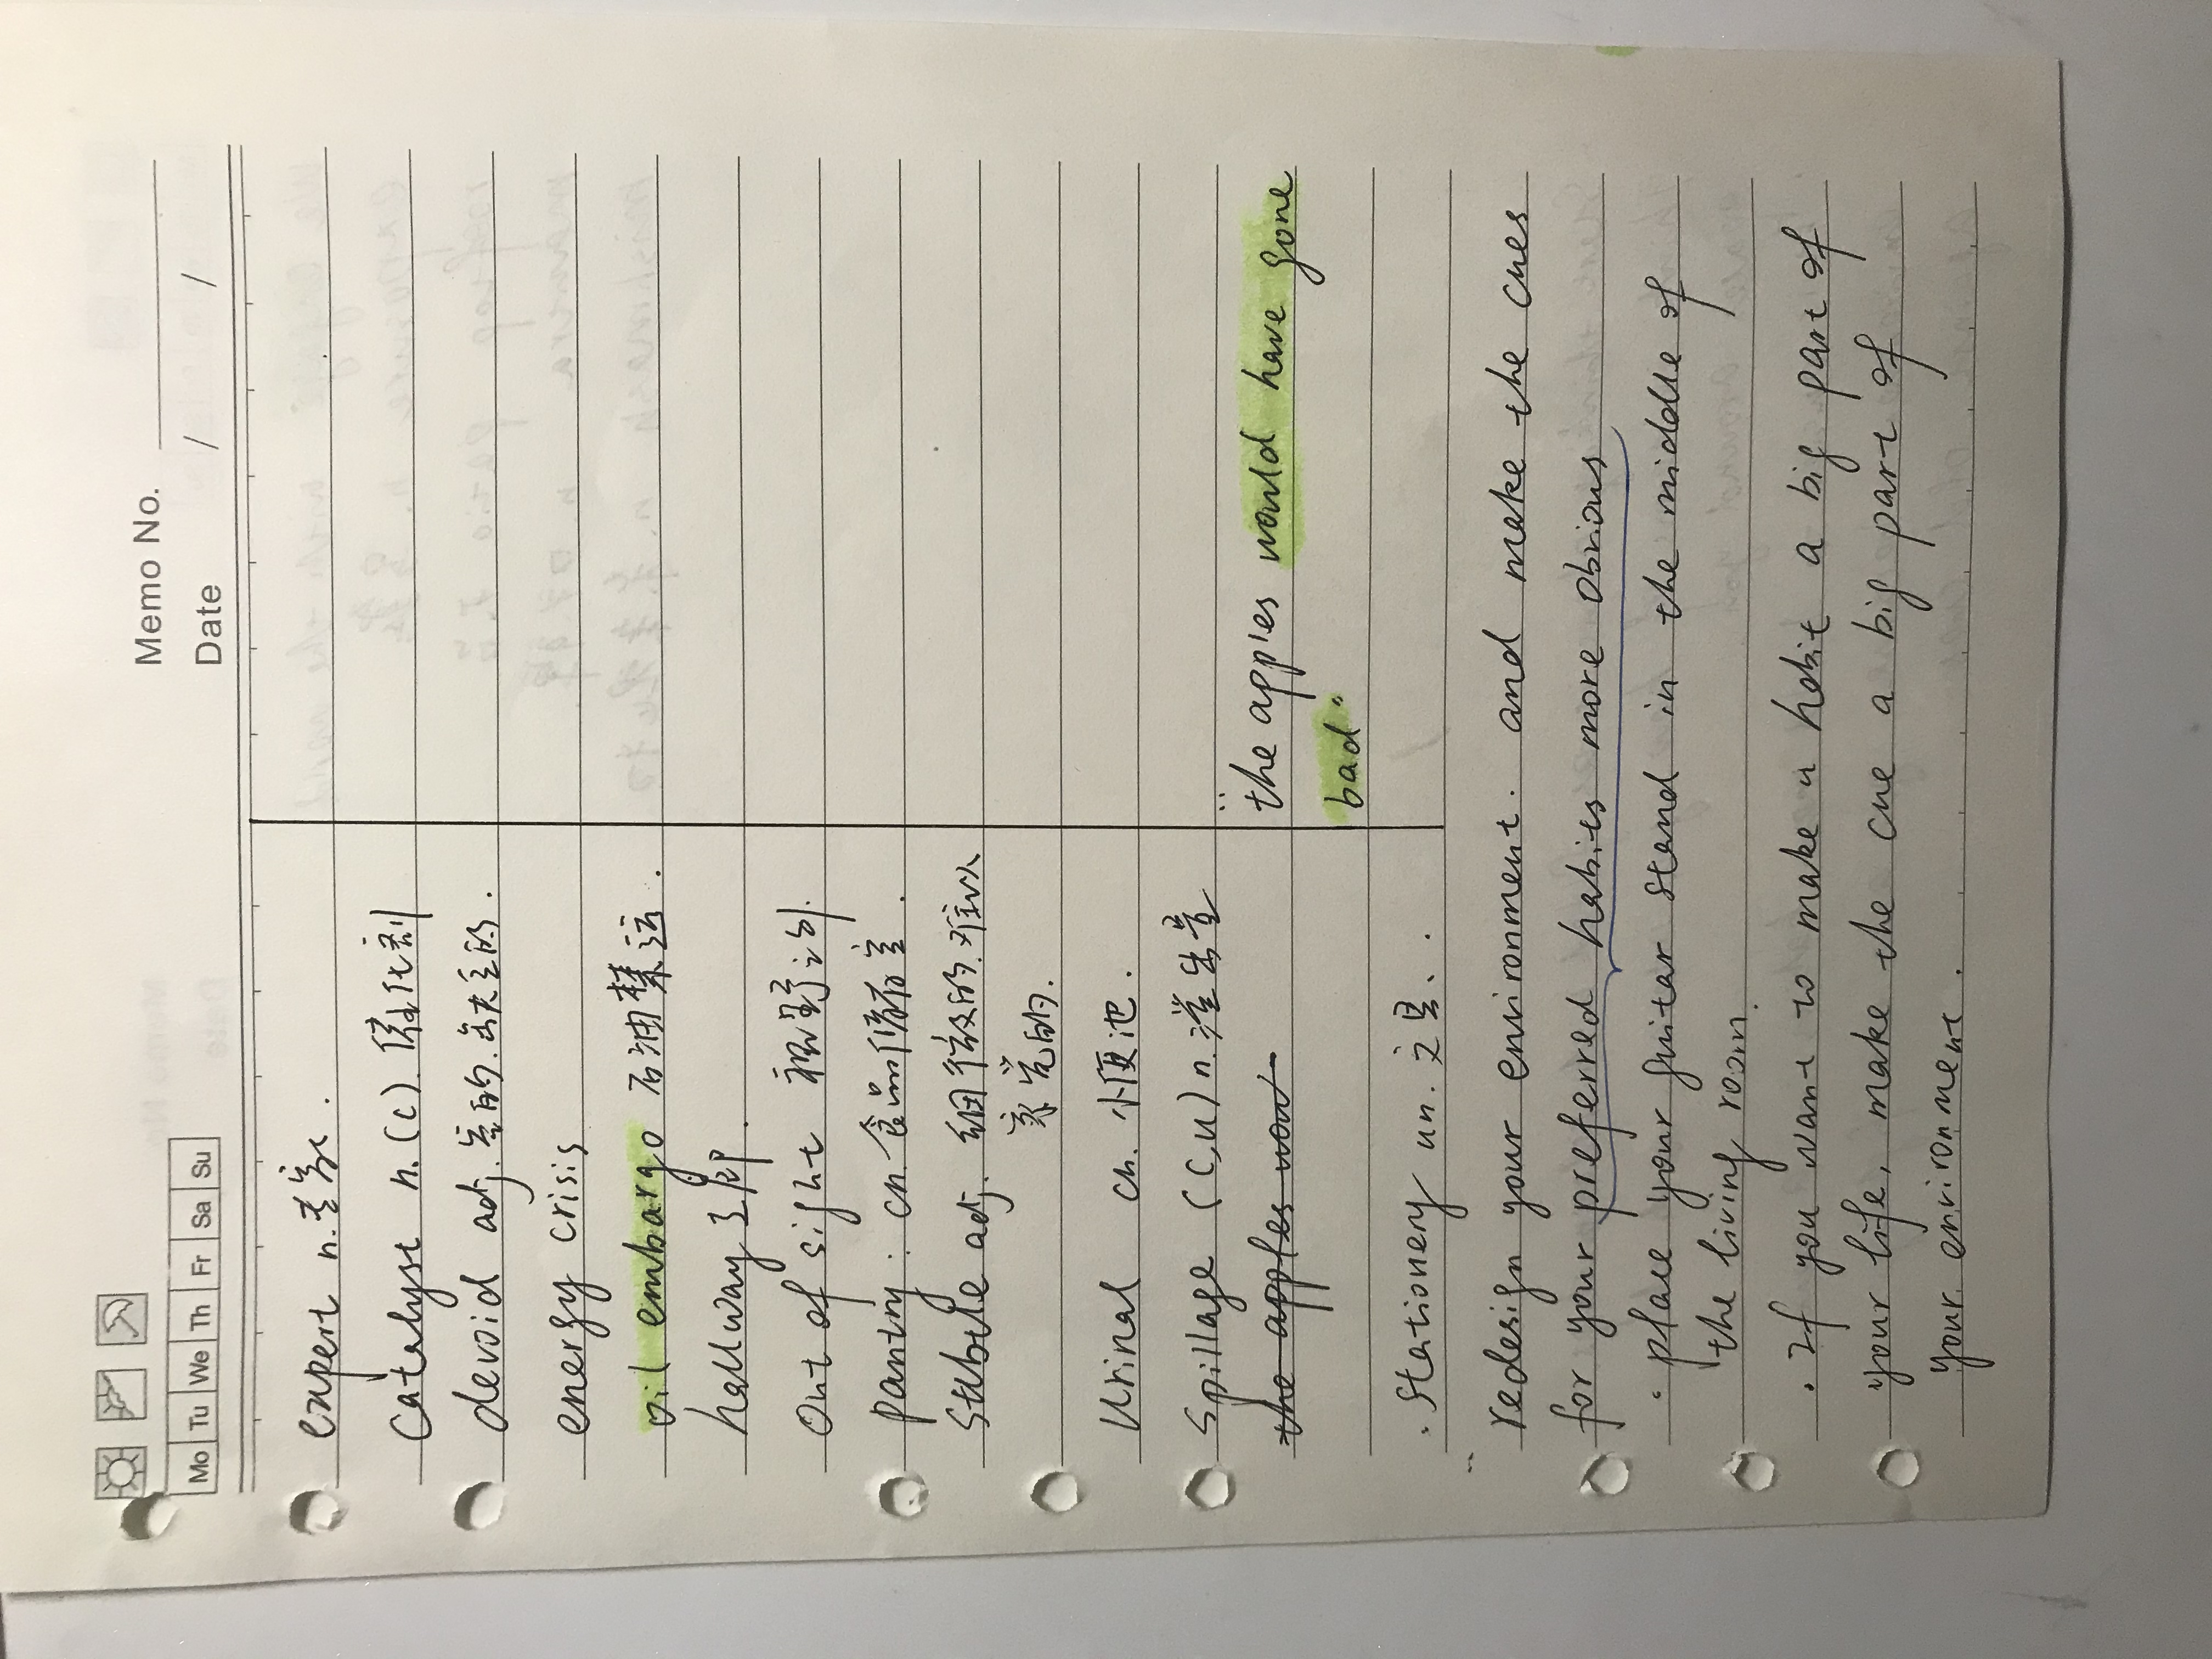 Memo No.
Mo Tu We Th Fr Sa Su
Date / /
expert n.专家.
Catalyst n.(c).催化剂
devoid adj.空的.缺乏的.
energy crisis
oil embargo 石油禁运.
hallway 走廊.
Out of sight 视野之外.
pantry: cn.食品储存室.
Subtle adj. 细微的.难以
察觉的.
Urinal cn. 小便池.
Spillage (C,U) n.溢出量
the apples wou
"the apples would have gone
bad."
· Stationery un. 文具..
" redesign your environment. and make the cues
for your preferred habits more obvious
· place your guitar stand in the middle of
the living room.
· If you want to make a habit a big part of
your life, make the cue a big part of
your environment.